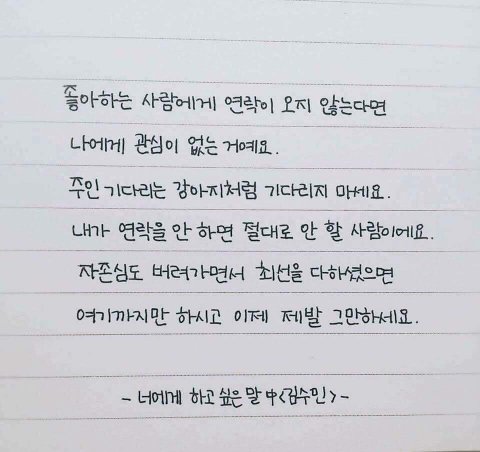 좋아하는 사람에게 연락이 오지 않는다면
나에게 관심이 없는 거예요.
주인 기다리는 강아지처럼 기다리지 마세요.
내가 연락을 안 하면 절대로 안 할 사람이에요.
자존심도 버려가면서 최선을 다하셨으면
여기까지만 하시고 이제 제발 그만하세요.
- 너에게 하고 싶은 말 中 <김수민> -